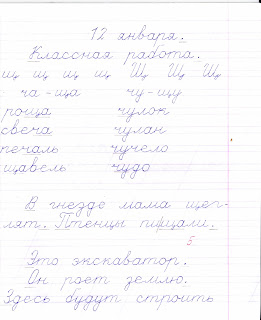 12 января.
Классная работа.
щ щ щ щ Щ Щ Щ
ча - ща чу - щу
роща чулок
свеча чулан
печаль чучело
щавель чудо
В гнезде мама щег-
лят. Птенцы пищали.
5
Это экскаватор.
Он роет землю.
Здесь будут строить